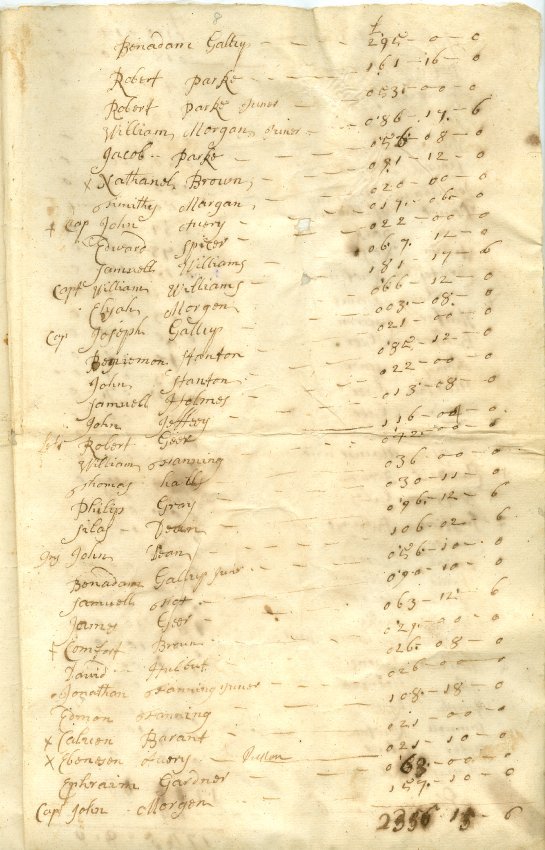 8
£
Benadam Gallup - - - 295 - 0 - 0
Robert Parke - - - 161 - 16 - 0
Robert Parke Juner - - 053 - 00 - 0
William Morgan Juner - - 086 - 17 - 6
Jacob Parke - - - 056 - 08 - 0
x Nathanel Brown - - - 081 - 12 - 0
Timithy Morgan - - - 020 - 00 - 0
+ Cap John Avery - - - 017 - 06 - 0
Edward Spicer - - - 022 - 00 - 0
Samuell Williams - - - 067 - 12 - 0
Capt William Williams - - - 181 - 17 - 6
Elijah Morgen - - - 066 - 12 - 0
Cap Joseph Gallup - - - 003 - 08 - 0
Beniemon Stanton - - - 021 - 00 - 0
John Stanton - - - 032 - 12 - 0
Samuell Holmes - - - 022 - 00 - 0
John Jeffery - - - 013 - 08 - 0
Robert Geer - - - 116 - 04 - 0
William Tanning - - - 042 - 00 - 0
Thomas Hall - - - 036 - 00 - 0
Philip Gray - - - 030 - 11 - 0
Silas Dean - - - 096 - 12 - 6
John Dean - - - 106 - 02 - 6
Benadam Gallup Juner - - 056 - 10 - 0
Samuell - - - 090 - 10 - 0
James Geer - - - 063 - 12 - 6
+ Comfort Brown - - - 029 - 00 - 0
David Hubbut - - - 026 - 03 - 0
Jonathan Tanning Juner - - 026 - 00 - 0
Tanning - - - 108 - 18 - 0
x Calwen Barant - - - 021 - 00 - 0
x Ebenesen Avery - - - 021 - 10 - 0
Ephraim Gardner - - - 063 - 00 - 0
Cap John Morgen - - - 157 - 10 - 0
2356 - 15 - 6